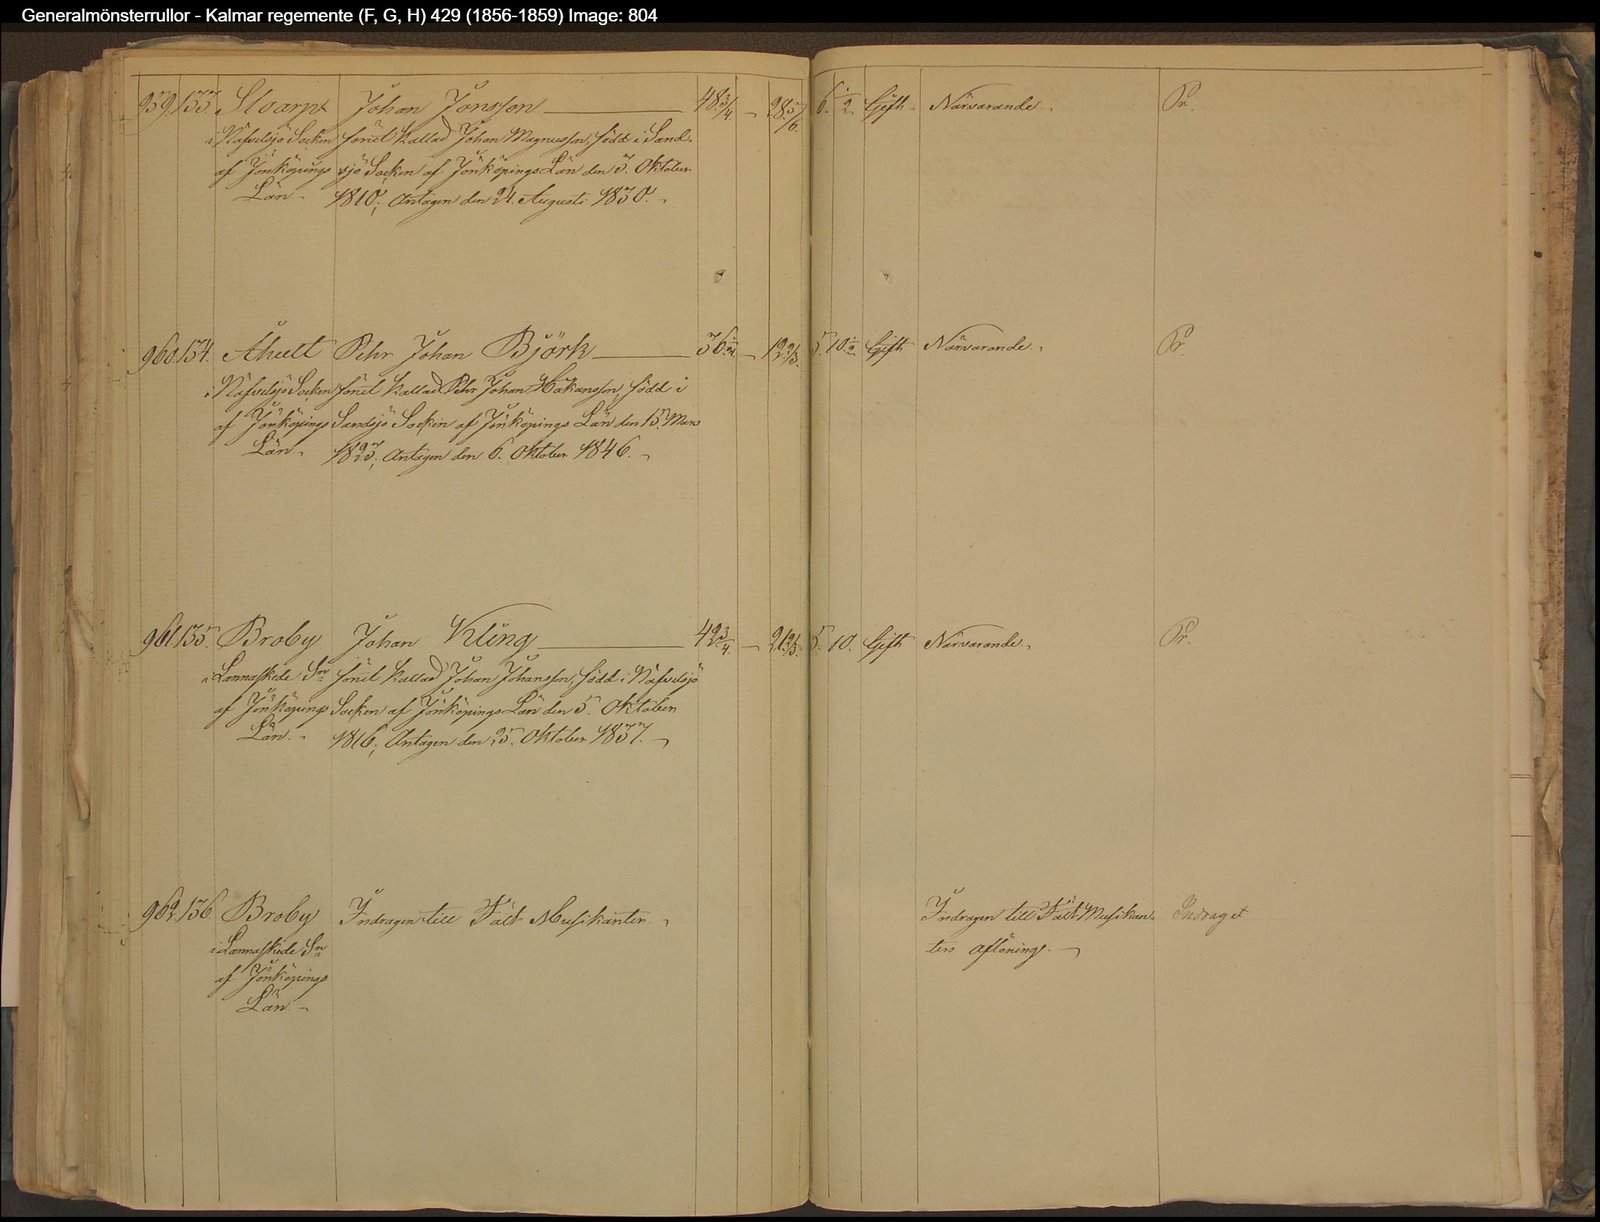 Generalmönsterrullor - Kalmar regemente (F, G, H) 429 (1856-1859) Image: 804
959. 133. Skarpt Johan Jonsson 48 3/4 28 5/6. 6. 1/2 Gift Närvarande. Pr.
i Näfvelsjö Socken förut kallad Johan Magnusson, född i Sand-
af Jönköpings sjö Socken af Jönköpings Län den 3. Oktober
Län. 1810; Antagen den 24. Augusti 1830.
960. 134. Ahult Pehr Johan Björk 36 1/2 12 2/3. 5. 10 1/2 Gift Närvarande. Pr.
i Näfvelsjö Socken förut kallad Pehr Johan Håkansson, född i
af Jönköpings Sandsjö Socken af Jönköpings Län den 15 Mars
Län. 1823; Antagen den 6. Oktober 1846.
961. 135. Broby Johan Kling 42 3/4. 21 2/3. 5. 10. Gift Närvarande. Pr.
i Lannaskede Sn förut kallad Johan Johansson, född i Näfvelsjö
af Jönköpings Socken af Jönköpings Län den 5. Oktober
Län. 1816; Antagen den 25. Oktober 1837.
962. 136. Broby Indragen till Fält Musikanter. Indragen till Fält Musikan- Indraget
i Lannaskede Sn ters aflöning.
af Jönköpings
Län.